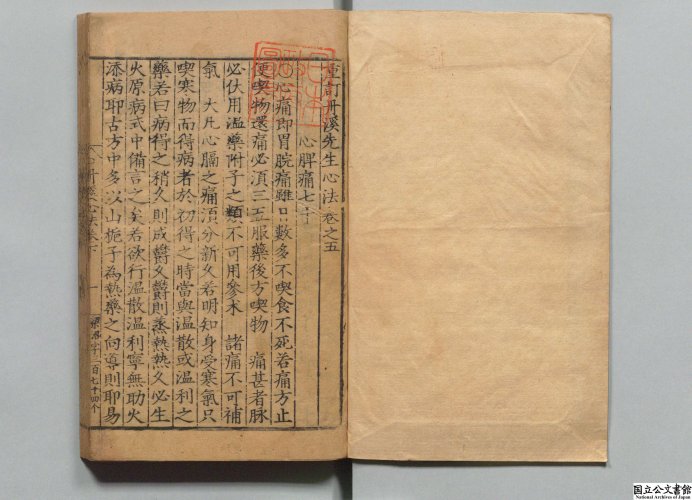 重訂丹溪先生心法 卷之五
心脾痛七十
心痛即胃脘痛雖日數多不喫食不死若痛方止
便喫物還痛必須三五服藥後方喫物 痛甚者脉
必伏用溫藥附子之類不可用參术 諸痛不可補
氣 大凡心膈之痛須分新久若明知身受寒氣口
喫寒物而得病者於初得之時當與溫散或溫利之
藥若曰病得之稍久則成鬱久鬱則蒸熱熱久必生
火原病式中備言之矣若欲行溫散溫利寧無助火
添病耶古方中多以山梔子為熱藥之向導則邪易
國立公文書館
National Archives of Japan